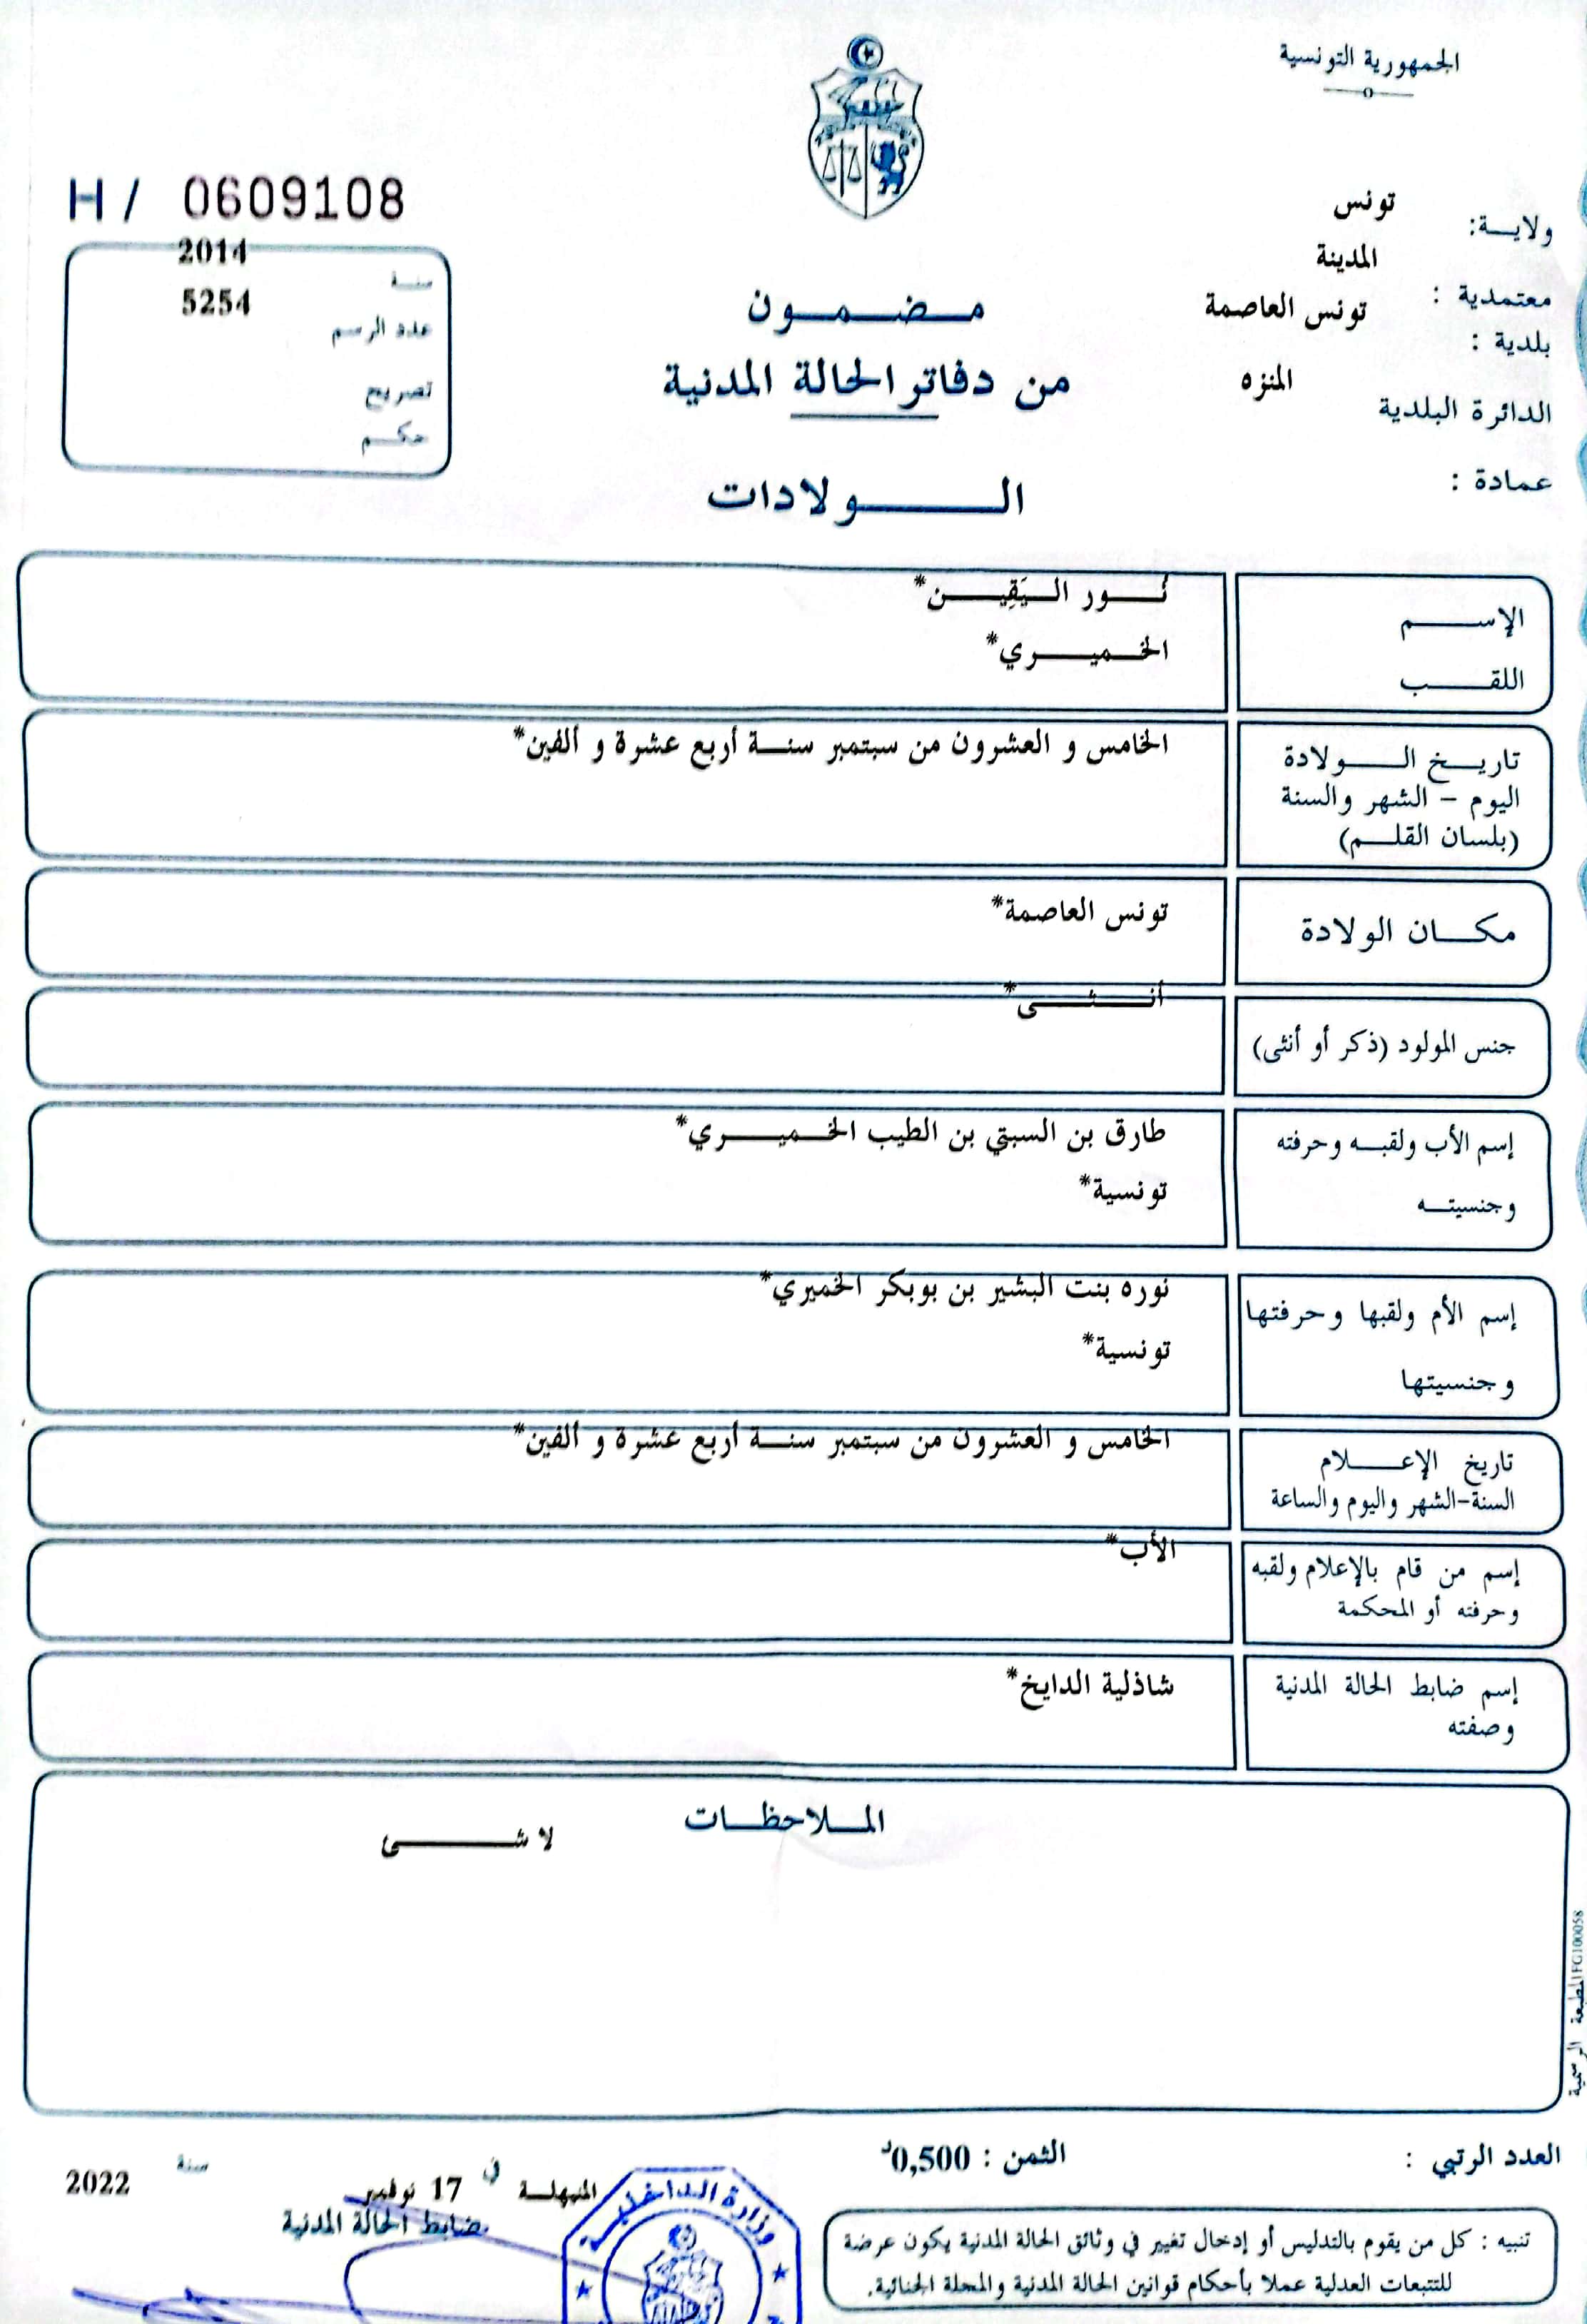 الجمهورية التونسية
H / 0609108
ولاية: تونس
معتمدية : المدينة
بلدية : تونس العاصمة
الدائرة البلدية المنزه
عمادة :
سنة 2014
عدد الرسم 5254
تصريح
حكم
مضمون
من دفاتر الحالة المدنية
الولادات
الإسم نُور اليَقِين*
اللقب الخميري*
تاريخ الولادة الخامس و العشرون من سبتمبر سنة أربع عشرة و ألفين*
اليوم - الشهر والسنة
(بلسان القلم)
مكان الولادة تونس العاصمة*
جنس المولود (ذكر أو أنثى) أنثى*
إسم الأب ولقبه وحرفته طارق بن السبتي بن الطيب الخميري*
وجنسيته تونسية*
إسم الأم ولقبها وحرفتها نوره بنت البشير بن بوبكر الخميري*
وجنسيتها تونسية*
تاريخ الإعلام الخامس و العشرون من سبتمبر سنة أربع عشرة و ألفين*
السنة-الشهر واليوم والساعة
إسم من قام بالإعلام ولقبه الأب*
وحرفته أو المحكمة
إسم ضابط الحالة المدنية شاذلية الدايخ*
وصفته
الملاحظات
لا شئ
المطبعة الرسمية FG100058
العدد الرتبي :
الثمن : 0,500د
المنيهلة في 17 نوفمبر سنة 2022
ضابط الحالة المدنية
وزارة الداخلية
تنبيه : كل من يقوم بالتدليس أو إدخال تغيير في وثائق الحالة المدنية يكون عرضة
للتتبعات العدلية عملا بأحكام قوانين الحالة المدنية والمجلة الجنائية.